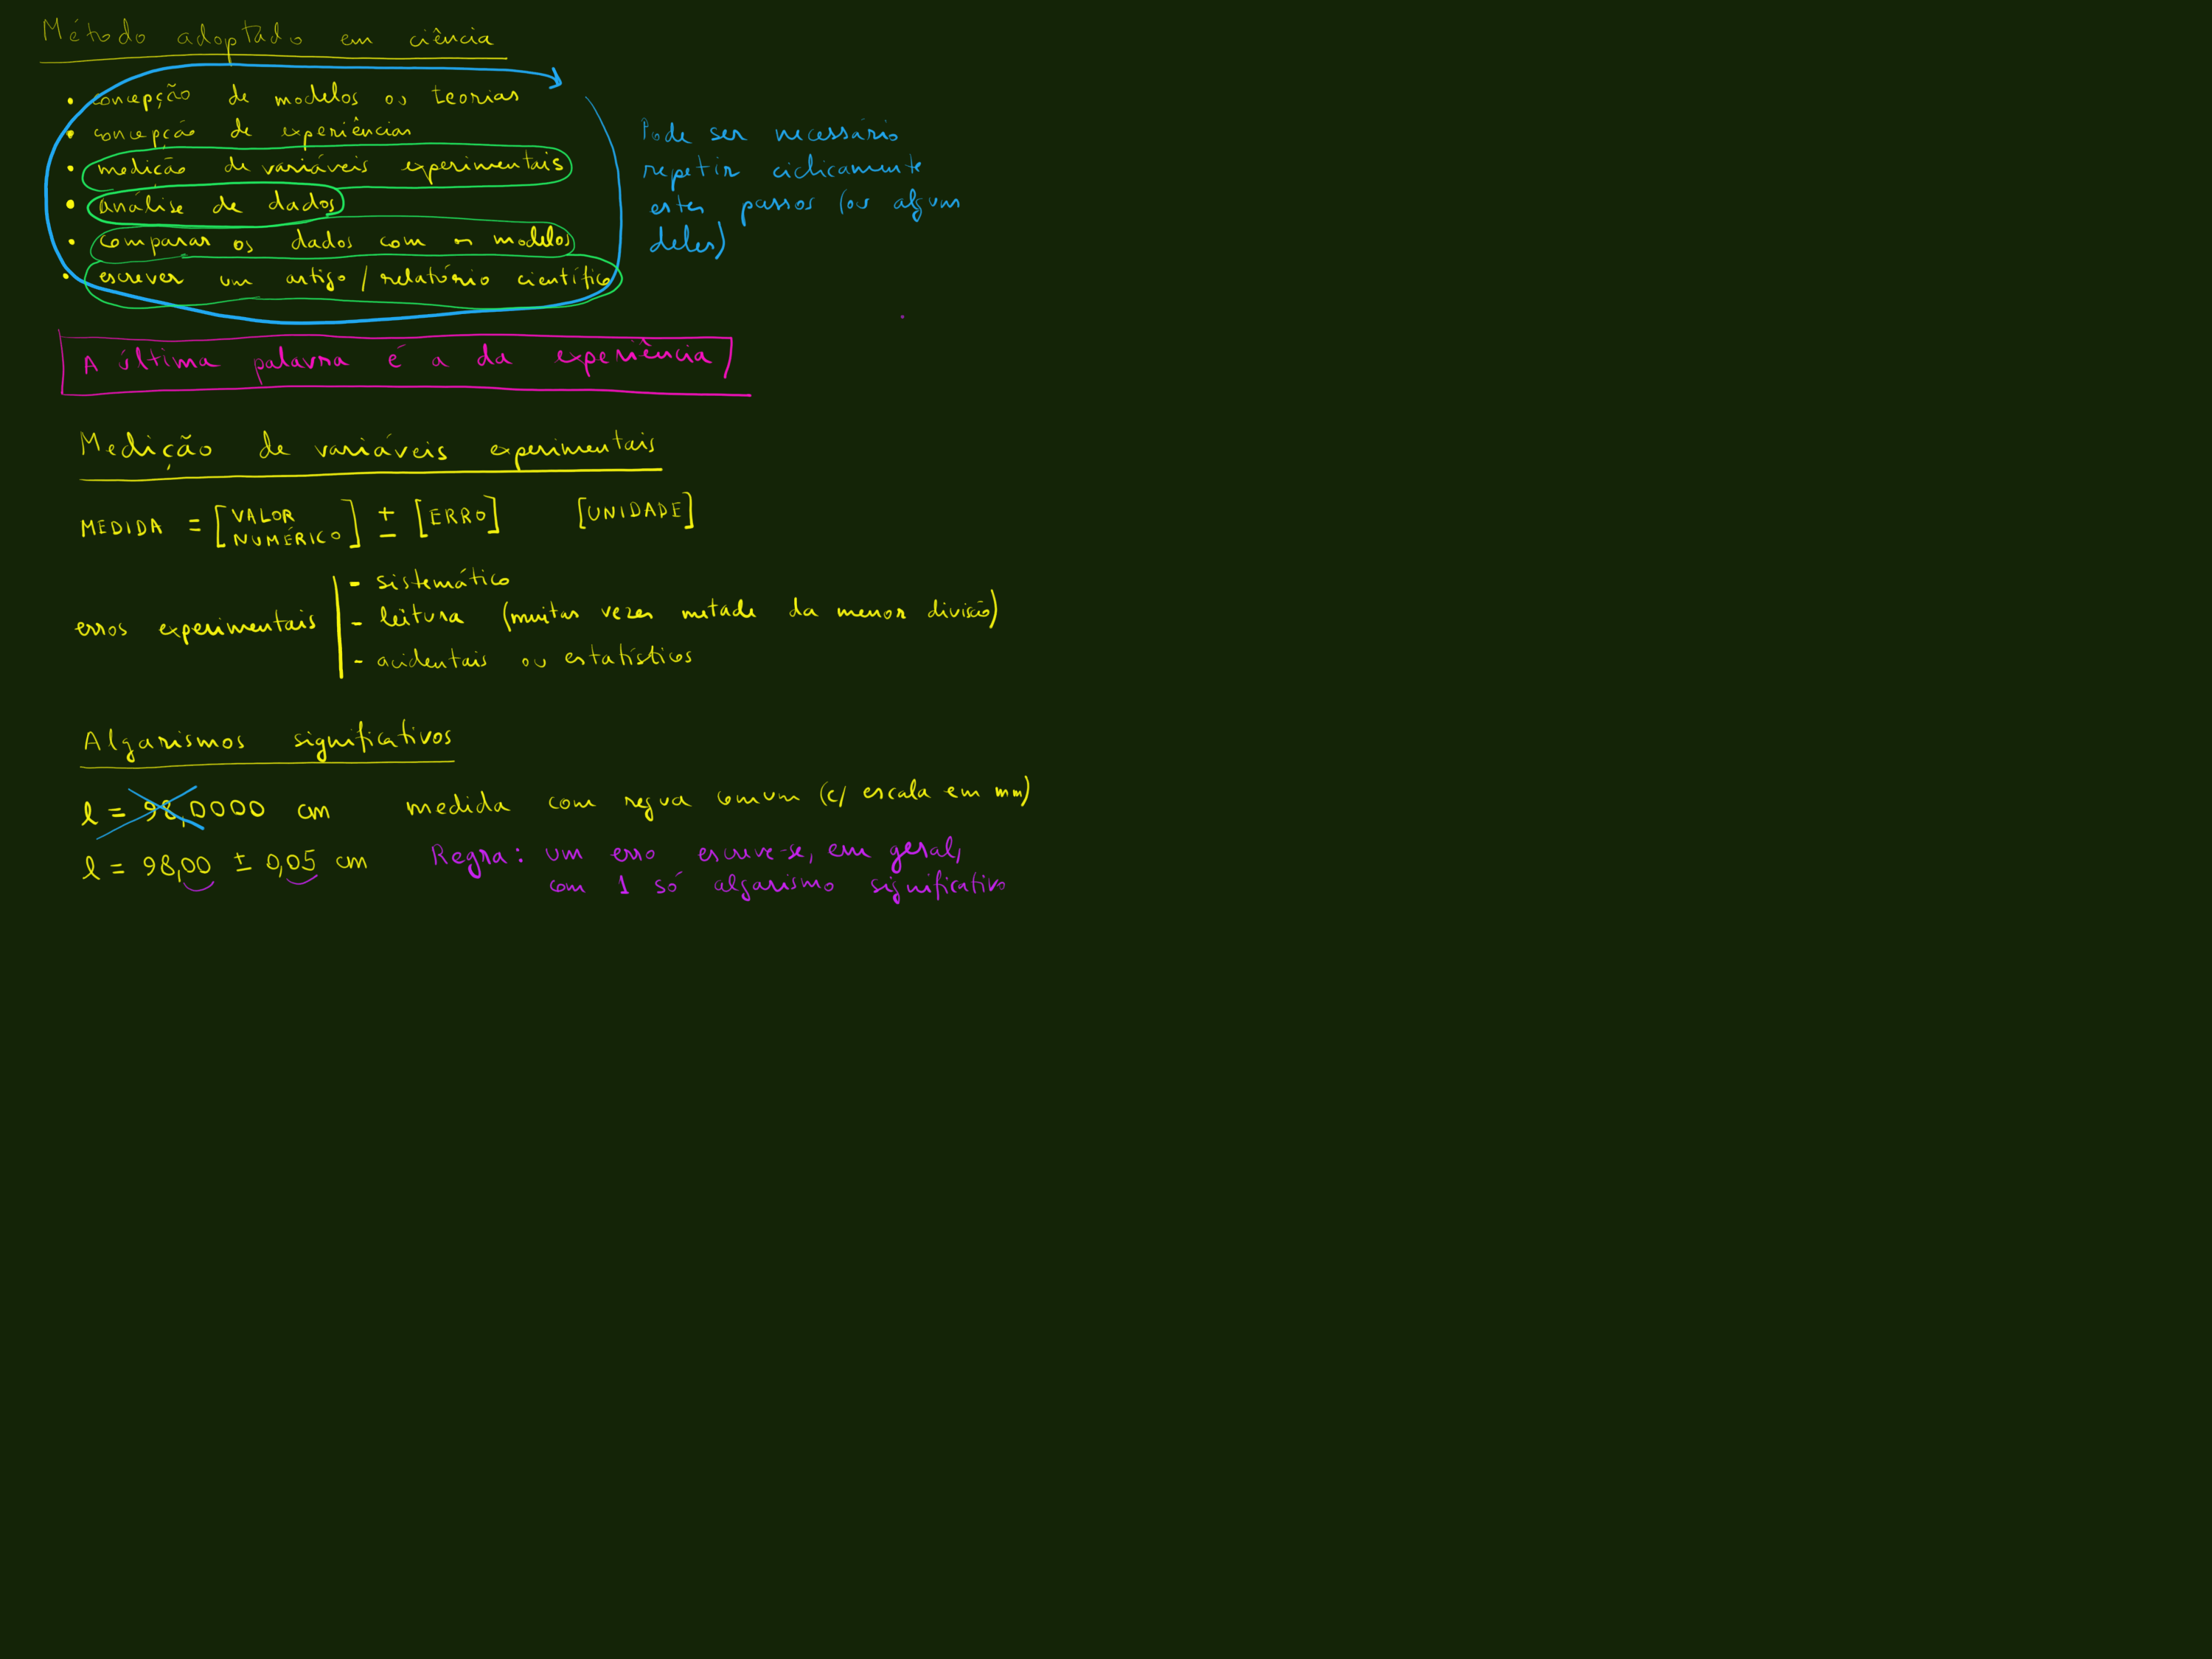 Método adoptado em ciência
• concepção de modelos ou teorias
• concepção de experiências
• medição de variáveis experimentais
• análise de dados
• comparar os dados com os modelos
• escrever um artigo / relatório científico
Pode ser necessário
repetir ciclicamente
estes passos (ou alguns
deles)
A última palavra é a da experiência
Medição de variáveis experimentais
MEDIDA = [VALOR NUMÉRICO] ± [ERRO] [UNIDADE]
erros experimentais
- sistemático
- leitura (muitas vezes metade da menor divisão)
- acidentais ou estatísticos
Algarismos significativos
l = 98,0000 cm medida com regua comum (c/ escala em mm)
l = 98,00 ± 0,05 cm
Regra: um erro escreve-se, em geral,
com 1 só algarismo significativo